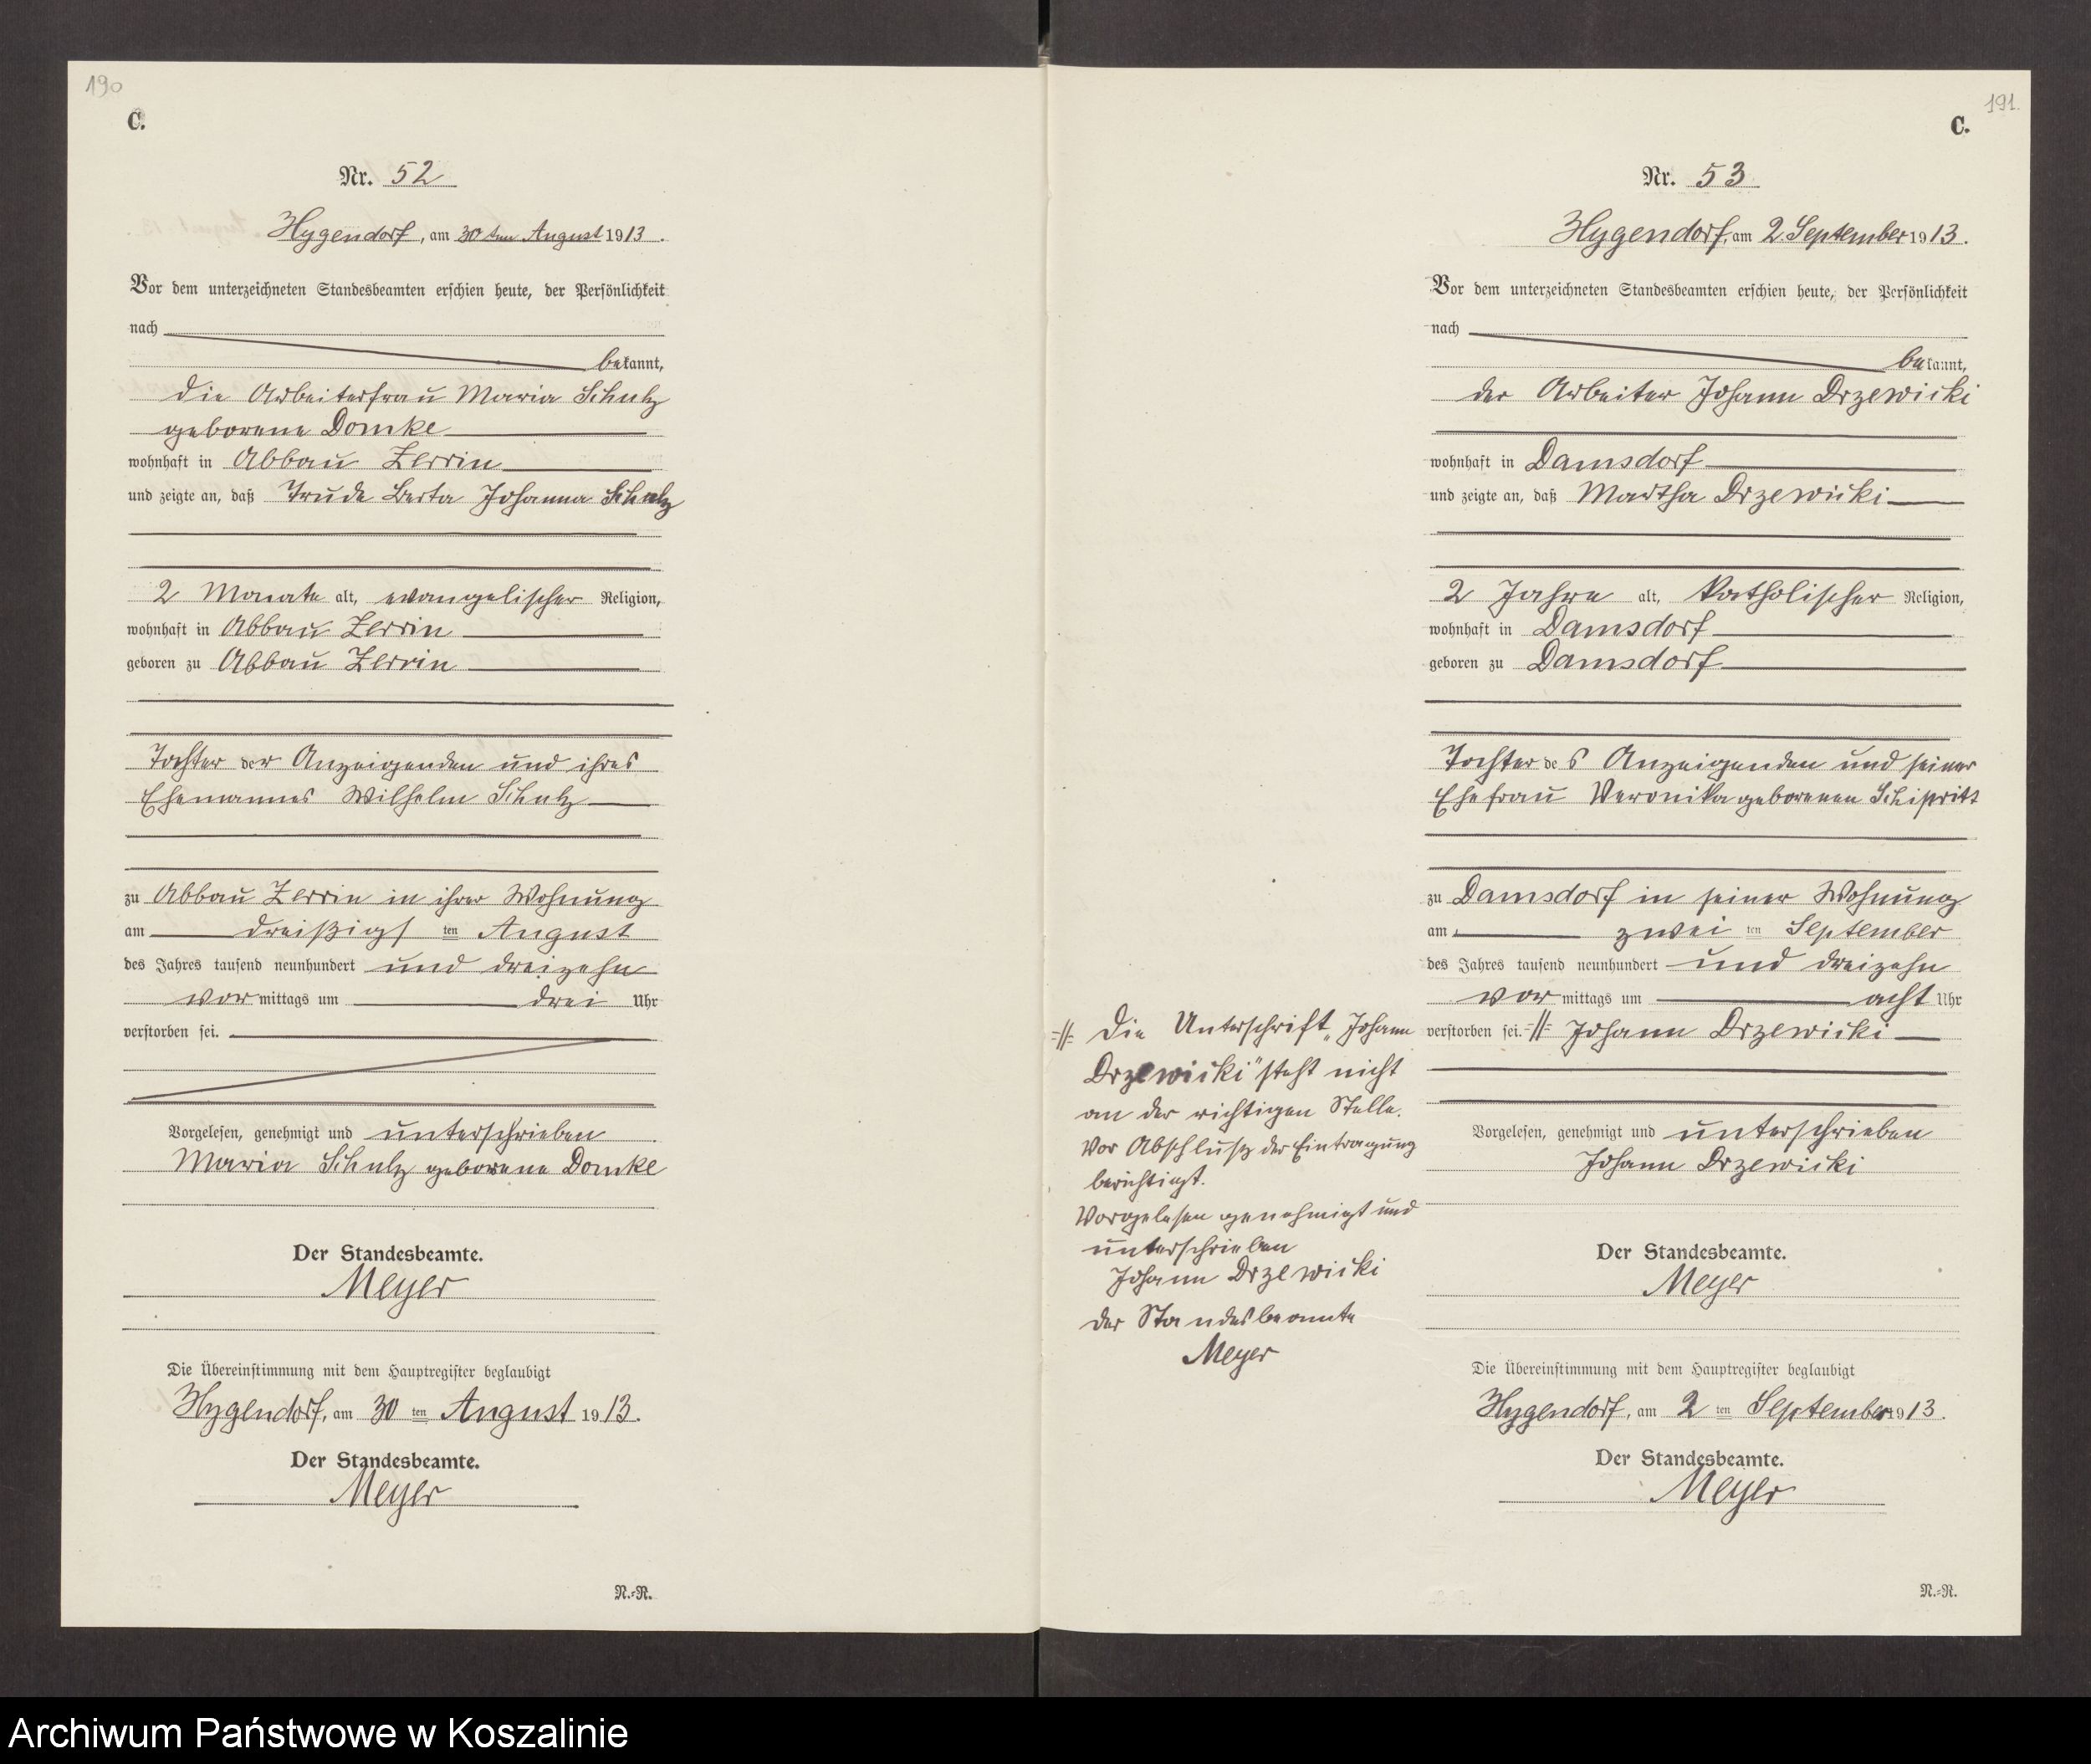 190
C.
Nr. 52
Hygendorf, am 30ten August 1913.
Vor dem unterzeichneten Standesbeamten erschien heute, der Persönlichkeit
nach
bekannt,
die Arbeiterfrau Maria Schulz
geborene Domke
wohnhaft in Abbau Zerrin
und zeigte an, daß Trude Berta Johanna Schulz
2 Monate alt, evangelischer Religion,
wohnhaft in Abbau Zerrin
geboren zu Abbau Zerrin
Tochter der Anzeigenden und ihres
Ehemannes Wilhelm Schulz
zu Abbau Zerrin in ihrer Wohnung
am dreißigsten August
des Jahres tausend neunhundert und dreizehn
vormittags um drei Uhr
verstorben sei.
Vorgelesen, genehmigt und unterschrieben
Maria Schulz geborene Domke
Der Standesbeamte.
Meyer
Die Übereinstimmung mit dem Hauptregister beglaubigt
Hygendorf, am 30ten August 1913.
Der Standesbeamte.
Meyer
N.-R.
191.
C.
Nr. 53
Hygendorf, am 2. September 1913.
Vor dem unterzeichneten Standesbeamten erschien heute, der Persönlichkeit
nach
bekannt,
der Arbeiter Johann Drzewicki
wohnhaft in Damsdorf
und zeigte an, daß Martha Drzewicki
2 Jahre alt, katholischer Religion,
wohnhaft in Damsdorf
geboren zu Damsdorf
Tochter des Anzeigenden und seiner
Ehefrau Veronika geborenen
zu Damsdorf in seiner Wohnung
am zweiten September
des Jahres tausend neunhundert und dreizehn
vormittags um acht Uhr
verstorben sei. =//= Johann Drzewicki
Vorgelesen, genehmigt und unterschrieben
Johann Drzewicki
Der Standesbeamte.
Meyer
Die Übereinstimmung mit dem Hauptregister beglaubigt
Hygendorf, am 2ten September 1913.
Der Standesbeamte.
Meyer
N.-R.
=//= Die Unterschrift „Johann
Drzewicki" steht nicht
an der richtigen Stelle.
Vor Abschluß der Eintragung
berichtigt.
Vorgelesen genehmigt und
unterschrieben
Johann Drzewicki
der Standesbeamte
Meyer
Archiwum Państwowe w Koszalinie